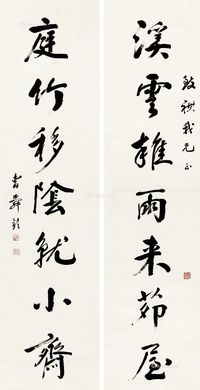 溪雲雜雨来茆屋
庭竹移陰就小齋